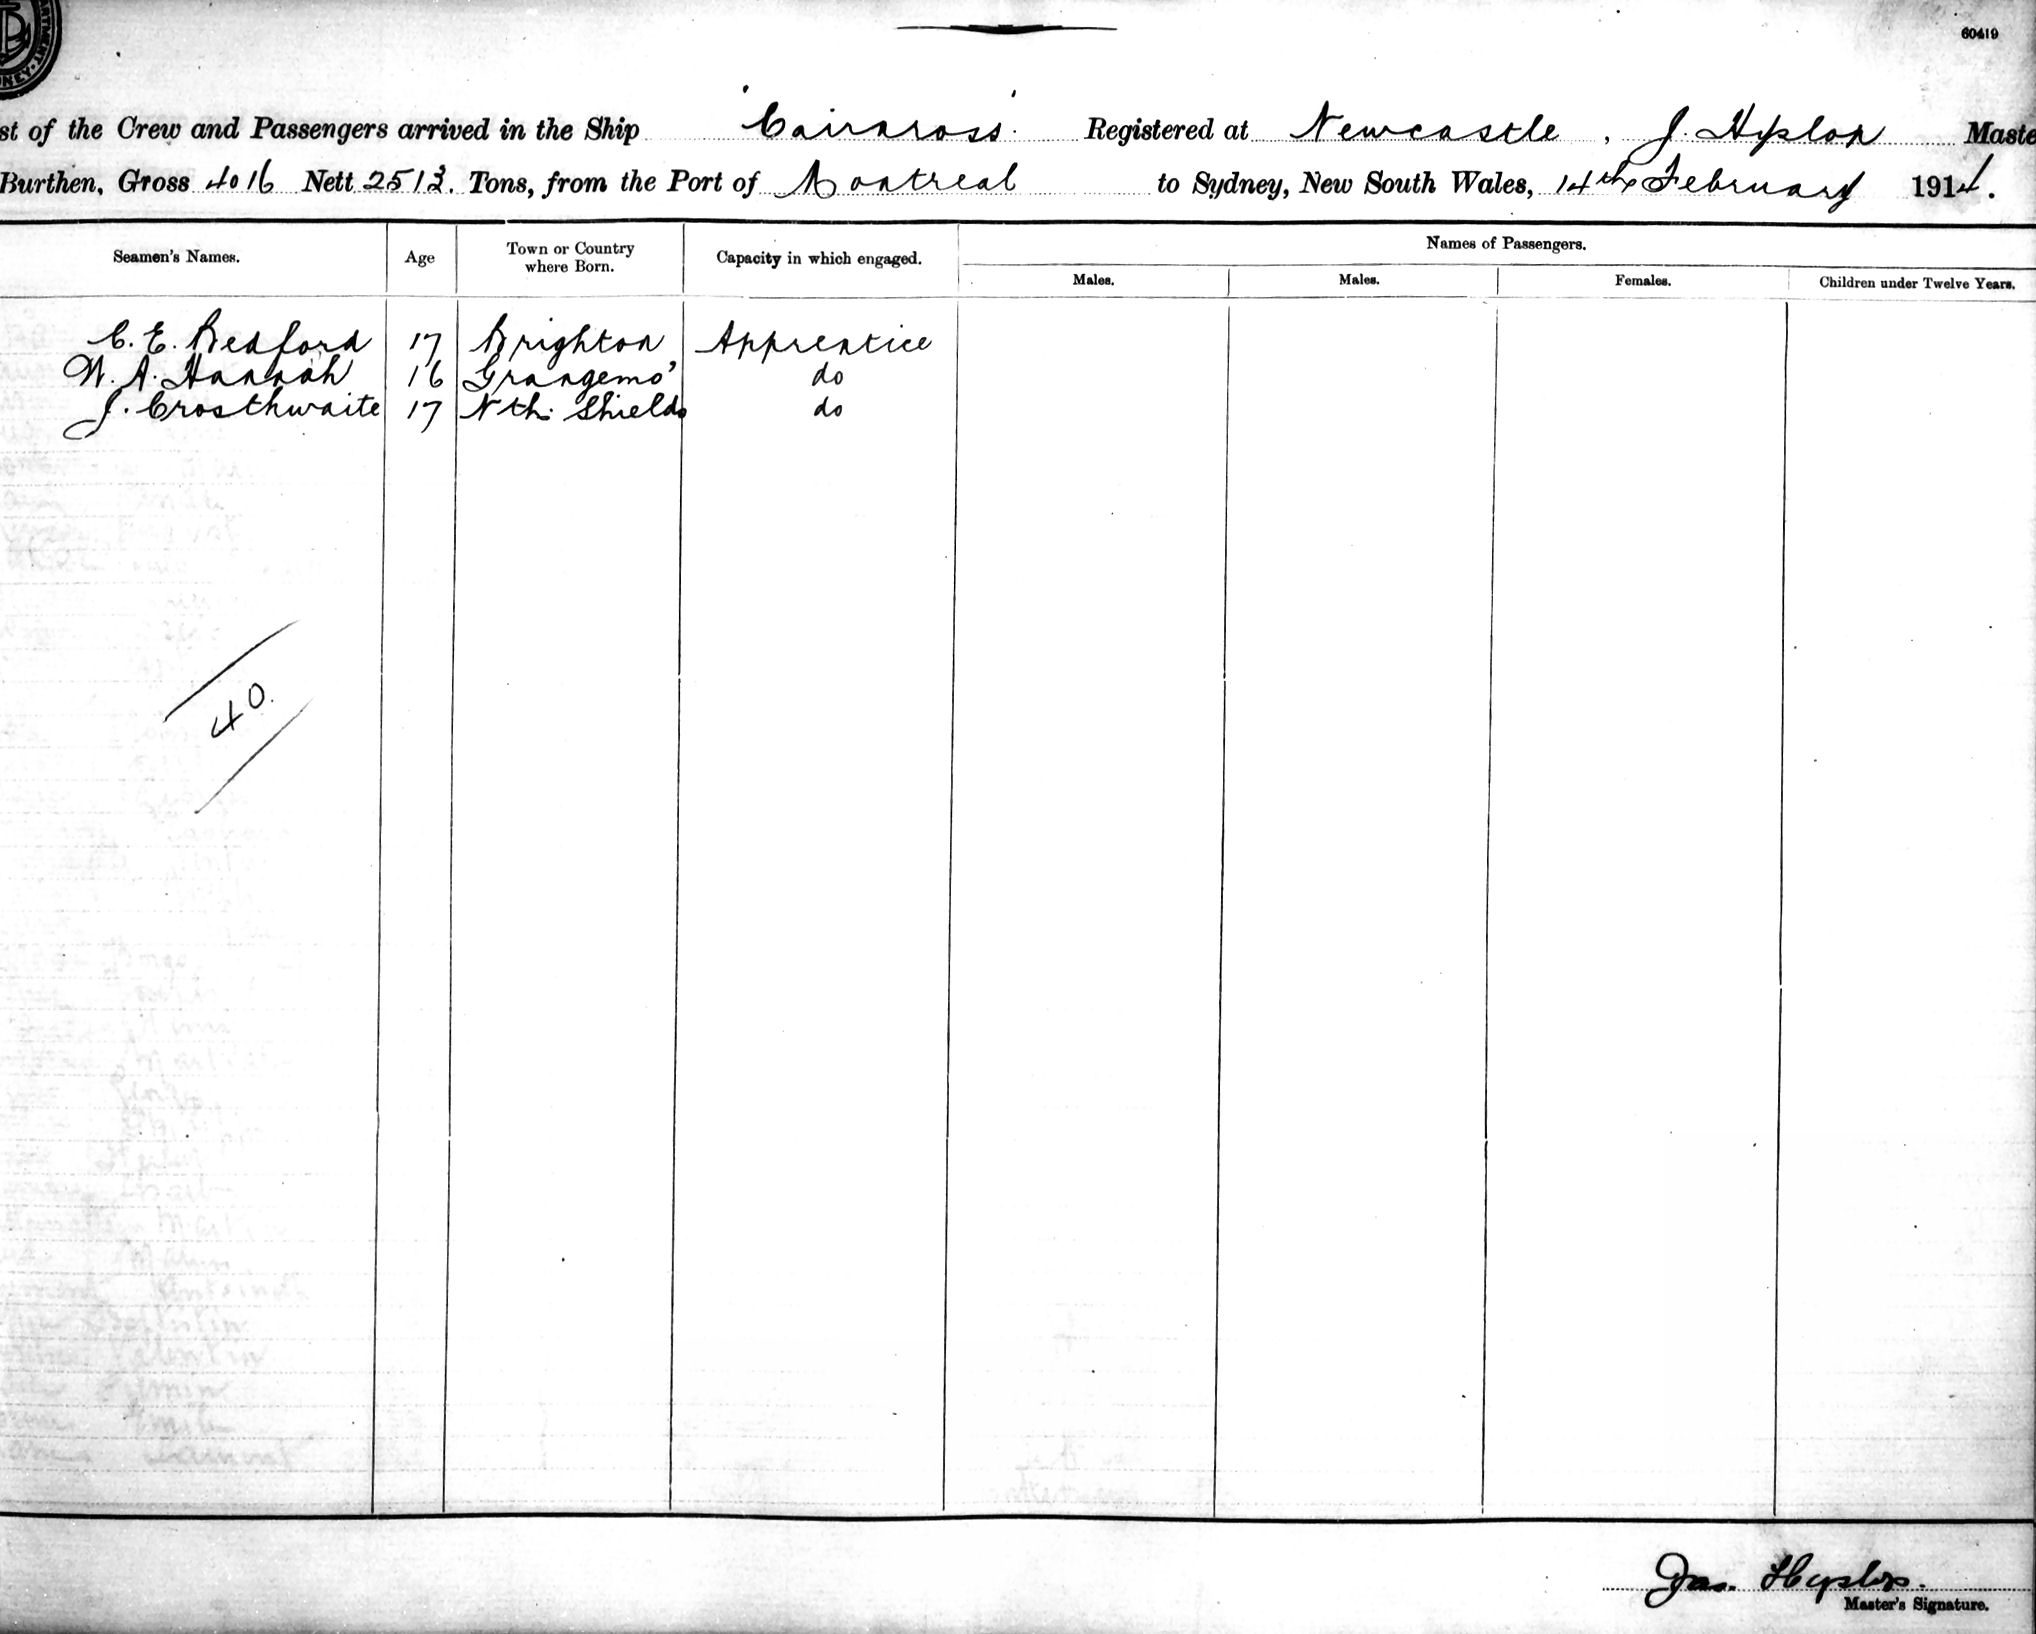 60419
st of the Crew and Passengers arrived in the Ship 'Cairnross' Registered at Newcastle, J. Hyslop Maste
Burthen, Gross 4016 Nett 2513. Tons, from the Port of Montreal to Sydney, New South Wales, 14th February 1914.
Seamen's Names. Age Town or Country where Born. Capacity in which engaged. Names of Passengers.
Males. Males. Females. Children under Twelve Years.
C. E. Bedford 17 Brighton Apprentice
W. A. Hannah 16 Grangemo' do
J. Crosthwaite 17 Nth. Shields do
40.
Jas. Hyslop.
Master's Signature.